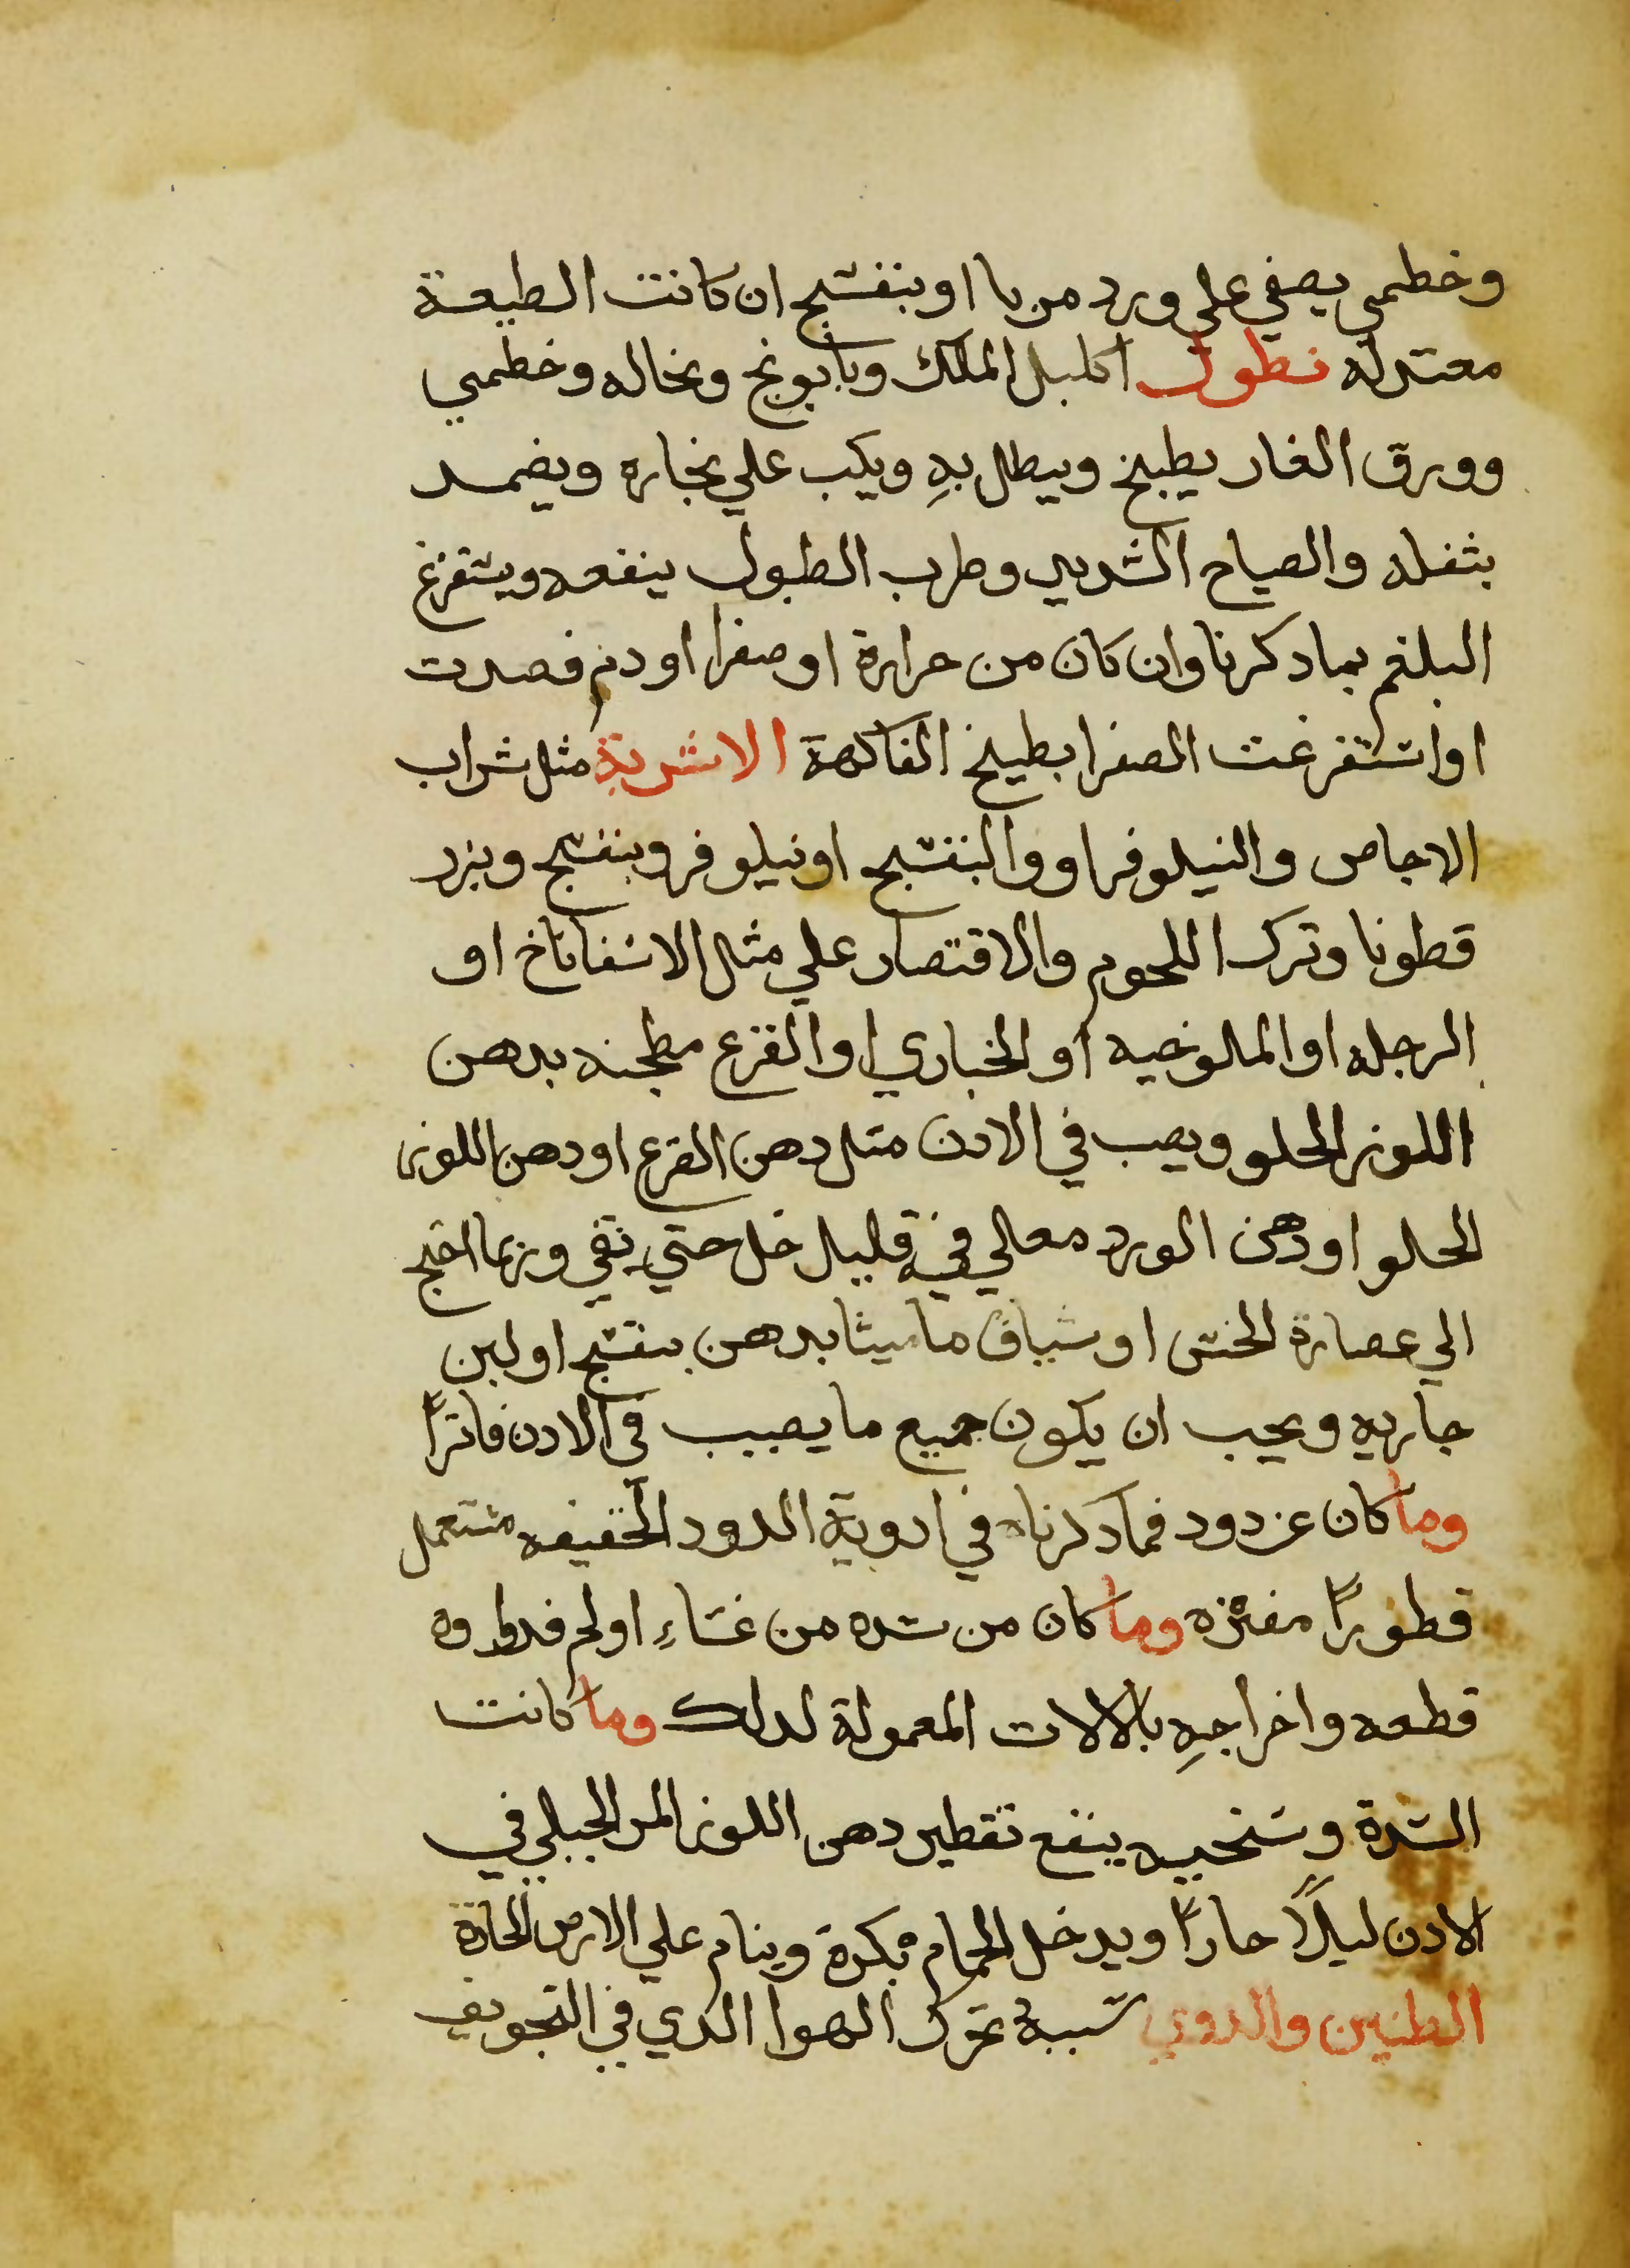 وخطمي يصفي علي ورد مربا او بنفسج ان كانت الطبيعة
معتدله نطول اكليل الملك وبابونج ونخاله وخطمي
وورق الغار يطبخ وينطل بهِ ويكب علي بخاره ويضمد
بثفله والصياح الشديد وضرب الطبول ينفعه ويستفرغ
البلغم بمادكرنا وان كان من حرارة او صفرا او دم فصدت
او استفرغت الصفرا بطبيخ الفاكهة الاشربة مثل شراب
الاجاص والنيلوفر او والبنفسج او نيلوفر وبنفسج وبزر
قطونا وترك اللحوم والاقتصار علي مثل الاسفاناخ او
الرجله او الملوخيه او الخباري او القرع مطجنه بدهن
اللوز الحلو ويصب في الادن متل دهن القرع او دهن اللوز
الحلو او دهن الورد مغالي فيه قليل خل حتي بقي وربما احتيج
الي عصارة الخس او شياف ماميثا بدهن بنفسج او لبن
جاريهِ ويجب ان يكون جميع ما يصب في الادن فاتراً
وما كان عن دود فمادكرناه في ادوية الدود الخفيفه مستعمل
قطوراً مفتره وما كان من سده من غشاءِ او لحم فدواوه
قطعه واخراجهِ بالالات المعمولة لدلك وما كانت
السدة وسخيه ينفع تقطير دهن اللوز المر الجبلي في
الادن ليلاً حاراً ويدخل الحمام بكرة وينام علي الارض الحارة
الطنين والدوي سببه تحرك الهوا الدي في التجويف